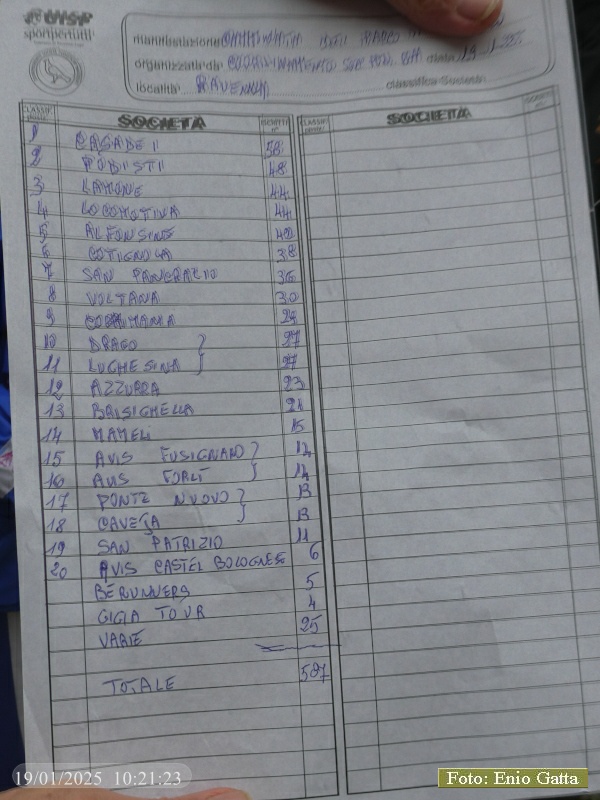 UISP
sportpertutti
manifestazione CAMMINATA DEL
organizzata da COORDINAMENTO data 19-1-25
località RAVENNA classifica Società
CLASSIF. SOCIETÀ ISCRITTI n° CLASSIF. SOCIETÀ
1 CASADEI 58
2 PODISTI 48
3 LAMONE 44
4 LOCOMOTIVA 44
5 ALFONSINE 42
6 COTIGNOLA 38
7 SAN PANCRAZIO 36
8 VOLTANA 30
9
10 DRAGO } 27
11 LUGHESINA } 27
12 AZZURRA 23
13 BRISIGHELLA 21
14 MAMELI 15
15 AVIS FUSIGNANO } 14
16 AVIS FORLÌ } 14
17 PONTE NUOVO } 13
18 CAVEJA } 13
19 SAN PATRIZIO 11
20 AVIS CASTEL BOLOGNESE 6
BERUNNERS 5
GIGIA TOUR 4
VARIE 25
TOTALE 587
19/01/2025 10:21:23
Foto: Enio Gatta